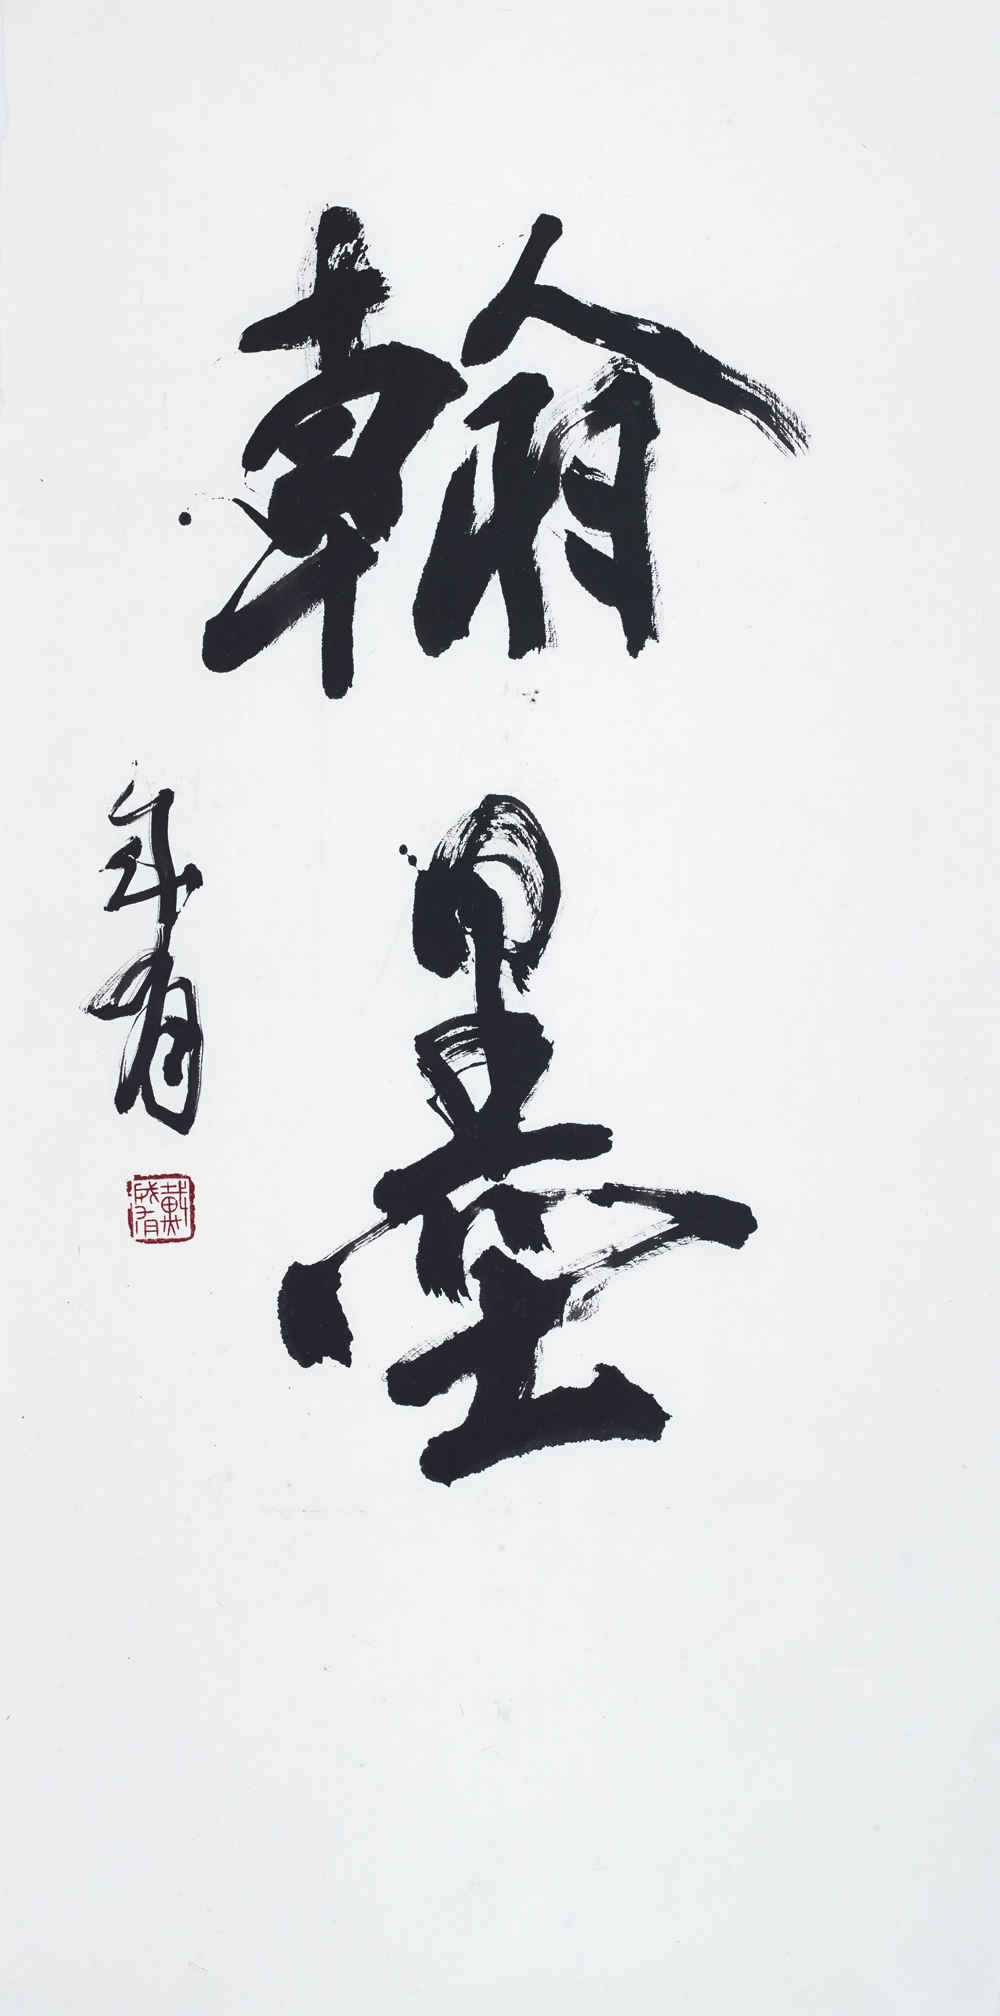 翰墨
成有
戴成有